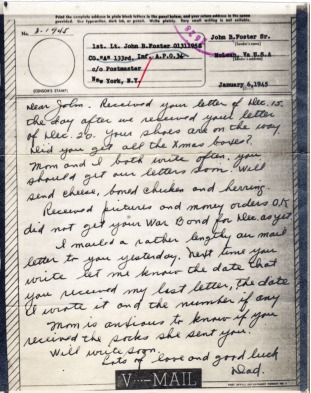 Print the complete address in plain block letters in the panel below, and your return address in the space
provided. Use typewriter, dark ink, or pencil. Write plainly. Very small writing is not suitable.
No. 2-1945
1st. Lt. John B.Foster 01311954
CO."A" 133rd. Inf. A.P.O.34
c/o Postmaster
New York, N.Y.
John B.Foster Sr.
McLean, Va U.S.A
January 6,1945
(CENSOR'S STAMP)
Dear John. Received your letter of Dec. 15.
the day after we received your letter
of Dec. 20. Your shoes are on the way
Did you get all the Xmas boxes?.
Mom and I both write often. you
should get our letters soon. Will
send cheese, boned chicken and herring.
Received pictures and money orders O.K
did not get your War Bond for Dec. as yet.
I mailed a rather lengthy air mail
letter to you yesterday. Next time you
write let me know the date that
you received my last letter, the date
I wrote it and the number if any
Mom is anxious to know if you
received the socks she sent you.
Will write soon.
Lots of love and good luck
Dad.
V···—MAIL